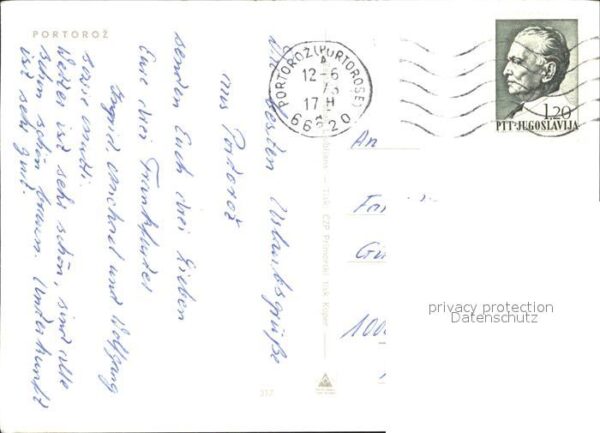 PORTOROŽ
Die besten Urlaubsgrüße
aus Portorož
senden Euch drei Lieben
Eure drei Frankfurter
Ingrid Michael und Wolfgang
sowie Mutti.
Wetter ist sehr schön, sind alle
schon schön braun. Unterkunft
ist sehr gut.
PORTOROŽ (PORTOROSE)
A
12-6
73
17 H
66320
1,20
PTT-JUGOSLAVIJA
Tisk ČZP Primorski tisk Koper
317
An
Fa
100
privacy protection
Datenschutz